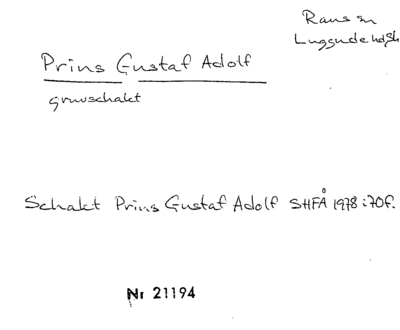 Raus sn
Luggude hd Sk
Prins Gustaf Adolf
gruvschakt
Schakt Prins Gustaf Adolf SHFÅ 1978:70f.
Nr 21194